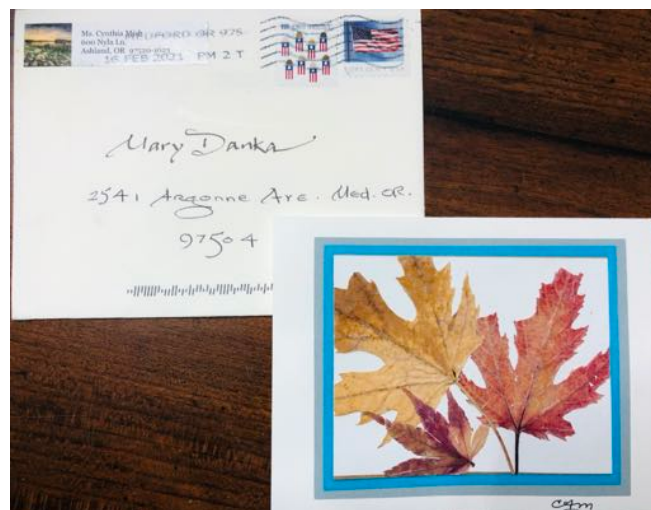 Ms. Cynthia
600 Nyla Ln.
Ashland, OR 97520
MEDFORD OR 975
16 FEB 2021 PM 2 T
Mary Danka
2541 Argonne Ave. Med. OR.
97504